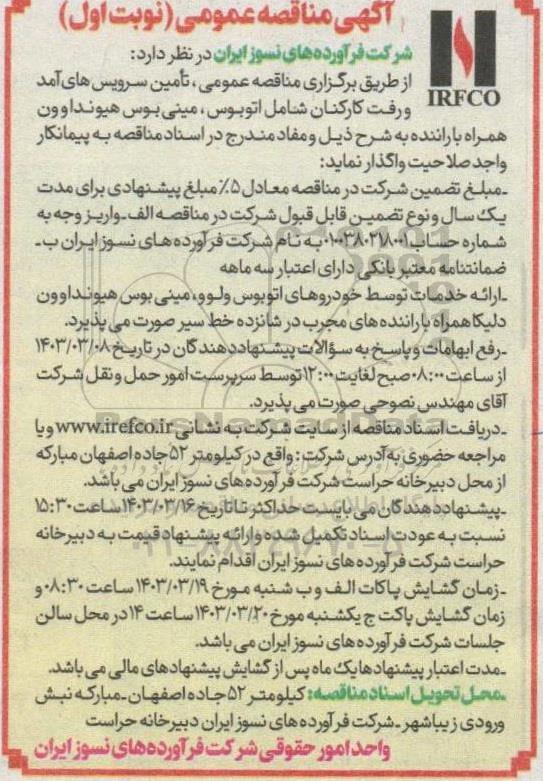 آگهی مناقصه عمومی (نوبت اول)
شرکت فرآورده‌های نسوز ایران در نظر دارد:
از طریق برگزاری مناقصه عمومی، تأمین سرویس های آمد
و رفت کارکنان شامل اتوبوس، مینی بوس هیوندا و ون
IRFCO
همراه با راننده به شرح ذیل و مفاد مندرج در اسناد مناقصه به پیمانکار
واجد صلاحیت واگذار نماید:
-مبلغ تضمین شرکت در مناقصه معادل ۵٪ مبلغ پیشنهادی برای مدت
یک سال و نوع تضمین قابل قبول شرکت در مناقصه الف-واریز وجه به
شماره حساب ۰۱۰۰۳۸۰۲۱۸۰۰۱ به نام شرکت فرآورده های نسوز ایران ب-
ضمانتنامه معتبر بانکی دارای اعتبار سه ماهه
-ارائه خدمات توسط خودروهای اتوبوس ولوو، مینی بوس هیوندا و ون
دلیکا همراه با راننده های مجرب در شانزده خط سیر صورت می پذیرد.
-رفع ابهامات و پاسخ به سؤالات پیشنهاد دهندگان در تاریخ ۱۴۰۳/۰۳/۰۸
از ساعت ۰۸:۰۰ صبح لغایت ۱۲:۰۰ توسط سرپرست امور حمل و نقل شرکت
آقای مهندس نصوحی صورت می پذیرد.
-دریافت اسناد مناقصه از سایت شرکت به نشانی www.irefco.ir و یا
مراجعه حضوری به آدرس شرکت: واقع در کیلومتر ۵۲ جاده اصفهان مبارکه
از محل دبیرخانه حراست شرکت فرآورده های نسوز ایران می باشد.
-پیشنهاد دهندگان می بایست حداکثر تا تاریخ ۱۴۰۳/۰۳/۱۶ ساعت ۱۵:۳۰
نسبت به عودت اسناد تکمیل شده و ارائه پیشنهاد قیمت به دبیرخانه
حراست شرکت فرآورده های نسوز ایران اقدام نمایند.
-زمان گشایش پاکات الف و ب شنبه مورخ ۱۴۰۳/۰۳/۱۹ ساعت ۰۸:۳۰ و
زمان گشایش پاکت ج یکشنبه مورخ ۱۴۰۳/۰۳/۲۰ ساعت ۱۴ در محل سالن
جلسات شرکت فرآورده های نسوز ایران می باشد.
-مدت اعتبار پیشنهادها یک ماه پس از گشایش پیشنهادهای مالی می باشد.
-محل تحویل اسناد مناقصه: کیلومتر ۵۲ جاده اصفهان-مبارکه نبش
ورودی زیباشهر-شرکت فرآورده های نسوز ایران دبیرخانه حراست
واحد امور حقوقی شرکت فرآورده های نسوز ایران